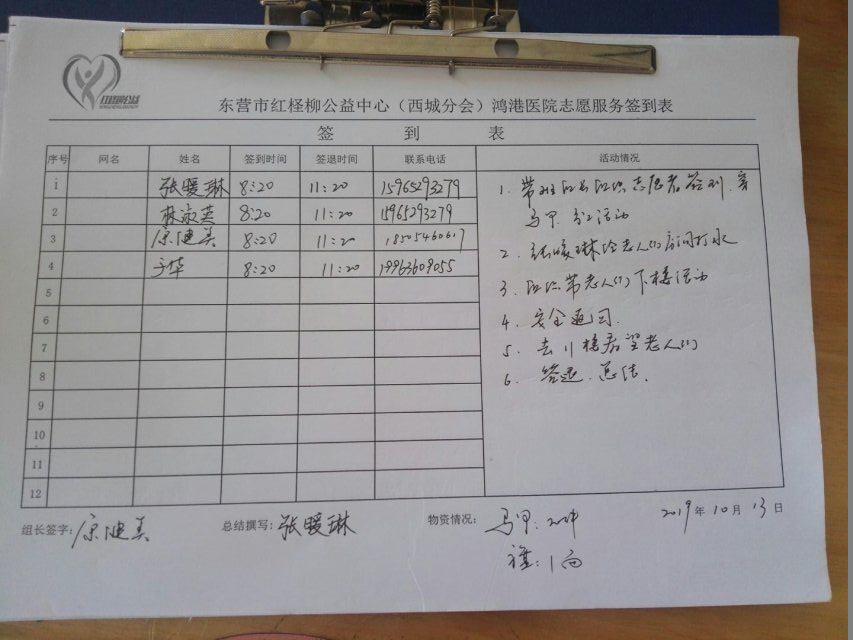 东营市红柽柳公益中心（西城分会）鸿港医院志愿服务签到表
签 到 表
序号 网名 姓名 签到时间 签退时间 联系电话 活动情况
1 张暖琳 8:20 11:20 15965293279
2 林淑英 8:20 11:20 15965293279
3 原建美 8:20 11:20 18505460617
4 于华 8:20 11:20 19963609055
5
6
7
8
9
10
11
12
1. 带班队长组织志愿者签到、穿
马甲、分工活动
2. 张暖琳给老人们房间打水
3. 组织带老人们下楼活动
4. 安全返回.
5. 去11楼看望老人们
6. 签退、总结.
组长签字: 原建美 总结撰写: 张暖琳 物资情况: 马甲:
2019年10月13日